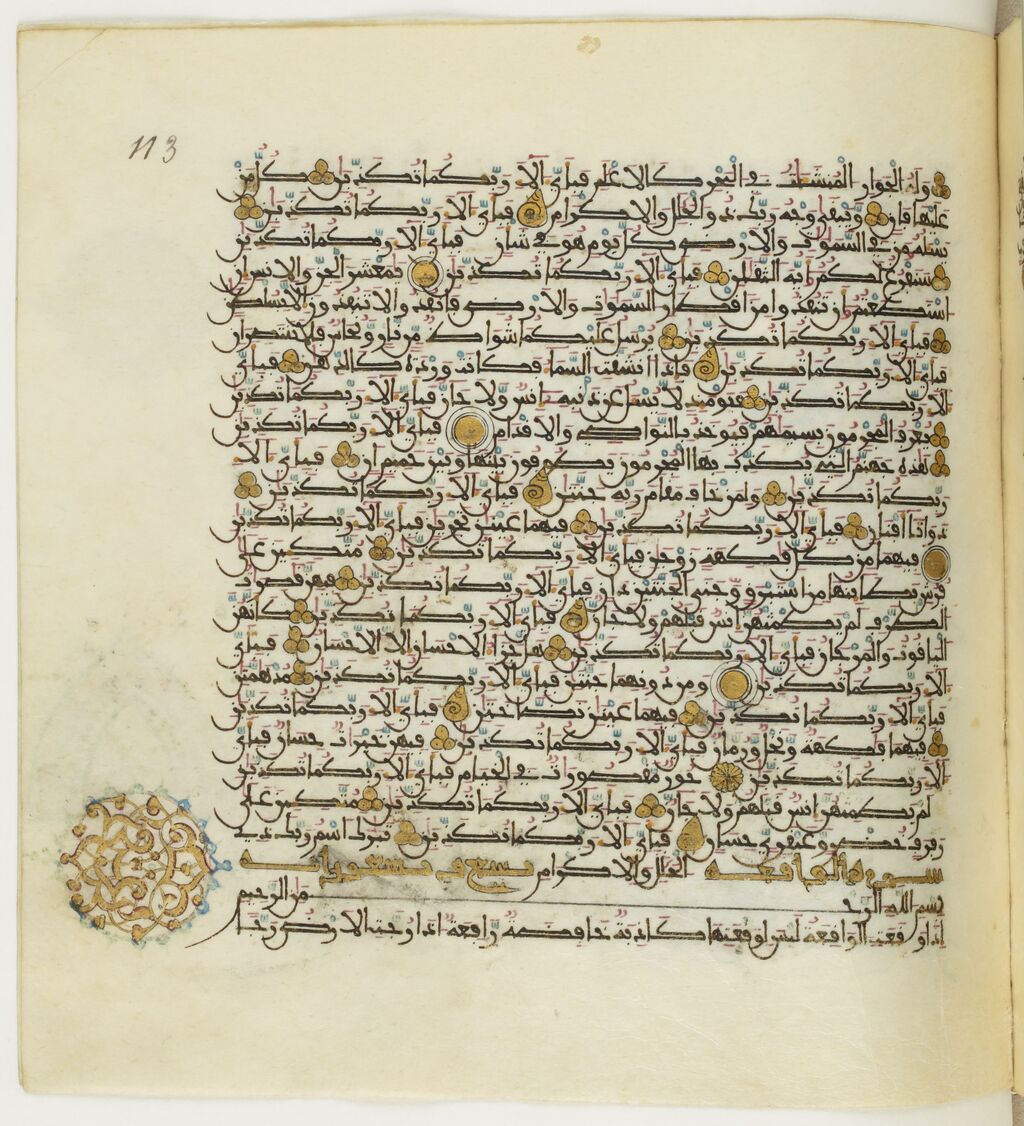 113
وله الجوار المنشئت في البحر كالاعلم فبأي ءالاء ربكما تكذبن كل من
عليها فان ويبقى وجه ربك ذو الجلل والاكرام فبأي ءالاء ربكما تكذبن
يسئله من في السموت والارض كل يوم هو في شأن فبأي ءالاء ربكما تكذبن
سنفرغ لكم أيه الثقلن فبأي ءالاء ربكما تكذبن يمعشر الجن والانس ان
استطعتم ان تنفذوا من اقطار السموت والارض فانفذوا لا تنفذون الا بسلطن
فبأي ءالاء ربكما تكذبن يرسل عليكما شواظ من نار ونحاس فلا تنتصران
فبأي ءالاء ربكما تكذبن فاذا انشقت السماء فكانت وردة كالدهن فبأي
ءالاء ربكما تكذبن فيومئذ لا يسئل عن ذنبه انس ولا جان فبأي ءالاء ربكما تكذبن
يعرف المجرمون بسيمهم فيؤخذ بالنواصي والاقدام فبأي ءالاء ربكما تكذبن
هذه جهنم التي يكذب بها المجرمون يطوفون بينها وبين حميم ءان فبأي ءالاء
ربكما تكذبن ولمن خاف مقام ربه جنتن فبأي ءالاء ربكما تكذبن
ذواتا افنان فبأي ءالاء ربكما تكذبن فيهما عينن تجرين فبأي ءالاء ربكما تكذبن
فيهما من كل فكهة زوجن فبأي ءالاء ربكما تكذبن متكئين على
فرش بطائنها من استبرق وجنى الجنتين دان فبأي ءالاء ربكما تكذبن فيهن قصرت
الطرف لم يطمثهن انس قبلهم ولا جان فبأي ءالاء ربكما تكذبن كأنهن
الياقوت والمرجان فبأي ءالاء ربكما تكذبن هل جزاء الاحسان الا الاحسان فبأي
ءالاء ربكما تكذبن ومن دونهما جنتن فبأي ءالاء ربكما تكذبن مدهمتن
فبأي ءالاء ربكما تكذبن فيهما عينن نضاختن فبأي ءالاء ربكما تكذبن
فيهما فكهة ونخل ورمان فبأي ءالاء ربكما تكذبن فيهن خيرت حسان فبأي
ءالاء ربكما تكذبن حور مقصورات في الخيام فبأي ءالاء ربكما تكذبن
لم يطمثهن انس قبلهم ولا جان فبأي ءالاء ربكما تكذبن متكئين على
رفرف خضر وعبقري حسان فبأي ءالاء ربكما تكذبن تبرك اسم ربك ذي
سورة الواقعة الجلل والاكرام تسع وتسعون اية
بسم الله الرحمن الرحيم
اذا وقعت الواقعة ليس لوقعتها كاذبة خافضة رافعة اذا رجت الارض رجا